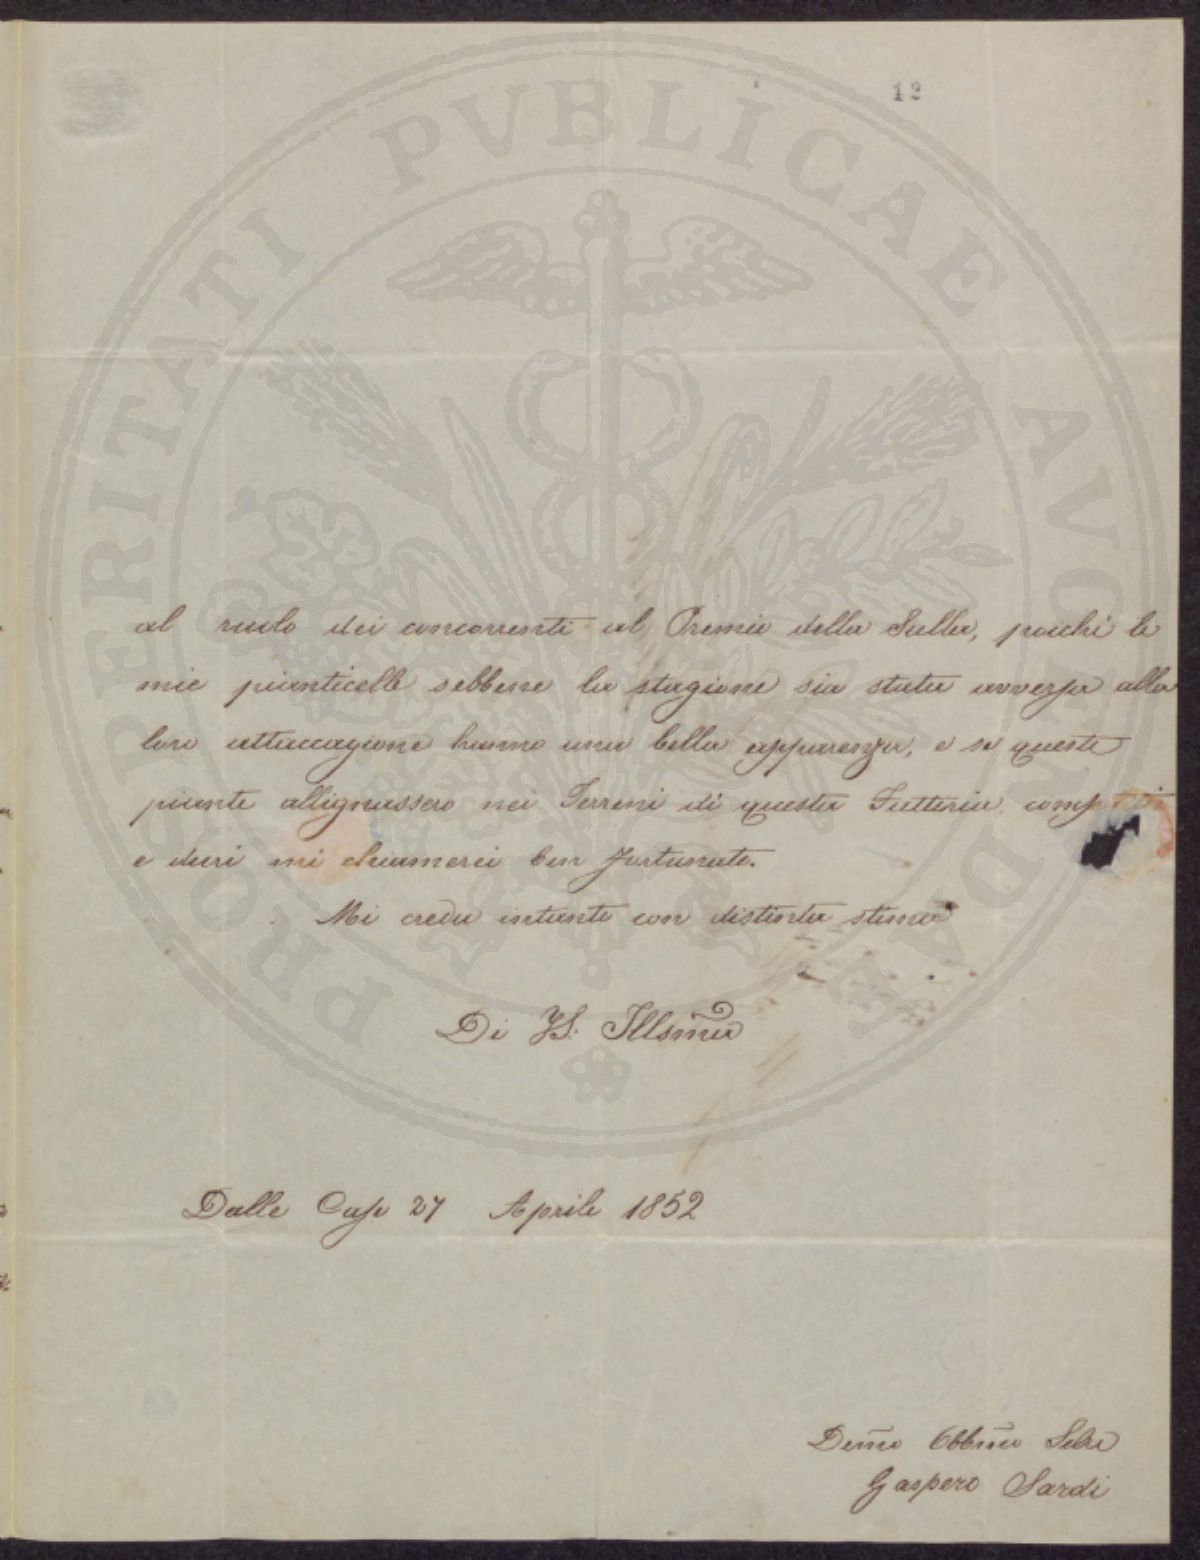 12
al ruolo dei concorrenti al Premio della Sulla, poichè le
mie pianticelle sebbene la stagione sia stata avversa alla
loro attaccagione hanno una bella apparenza, e se queste
piante allignassero nei Terreni di questa Fattoria
e duri mi chiamerei ben fortunato.
Mi creda intanto con distinta stima
Di VS. Illsma
Dalle Case 27 Aprile 1852
Demo Obbmo
Gaspero Sardi
PROSPERITATI PVBLICAE AVGENDAE